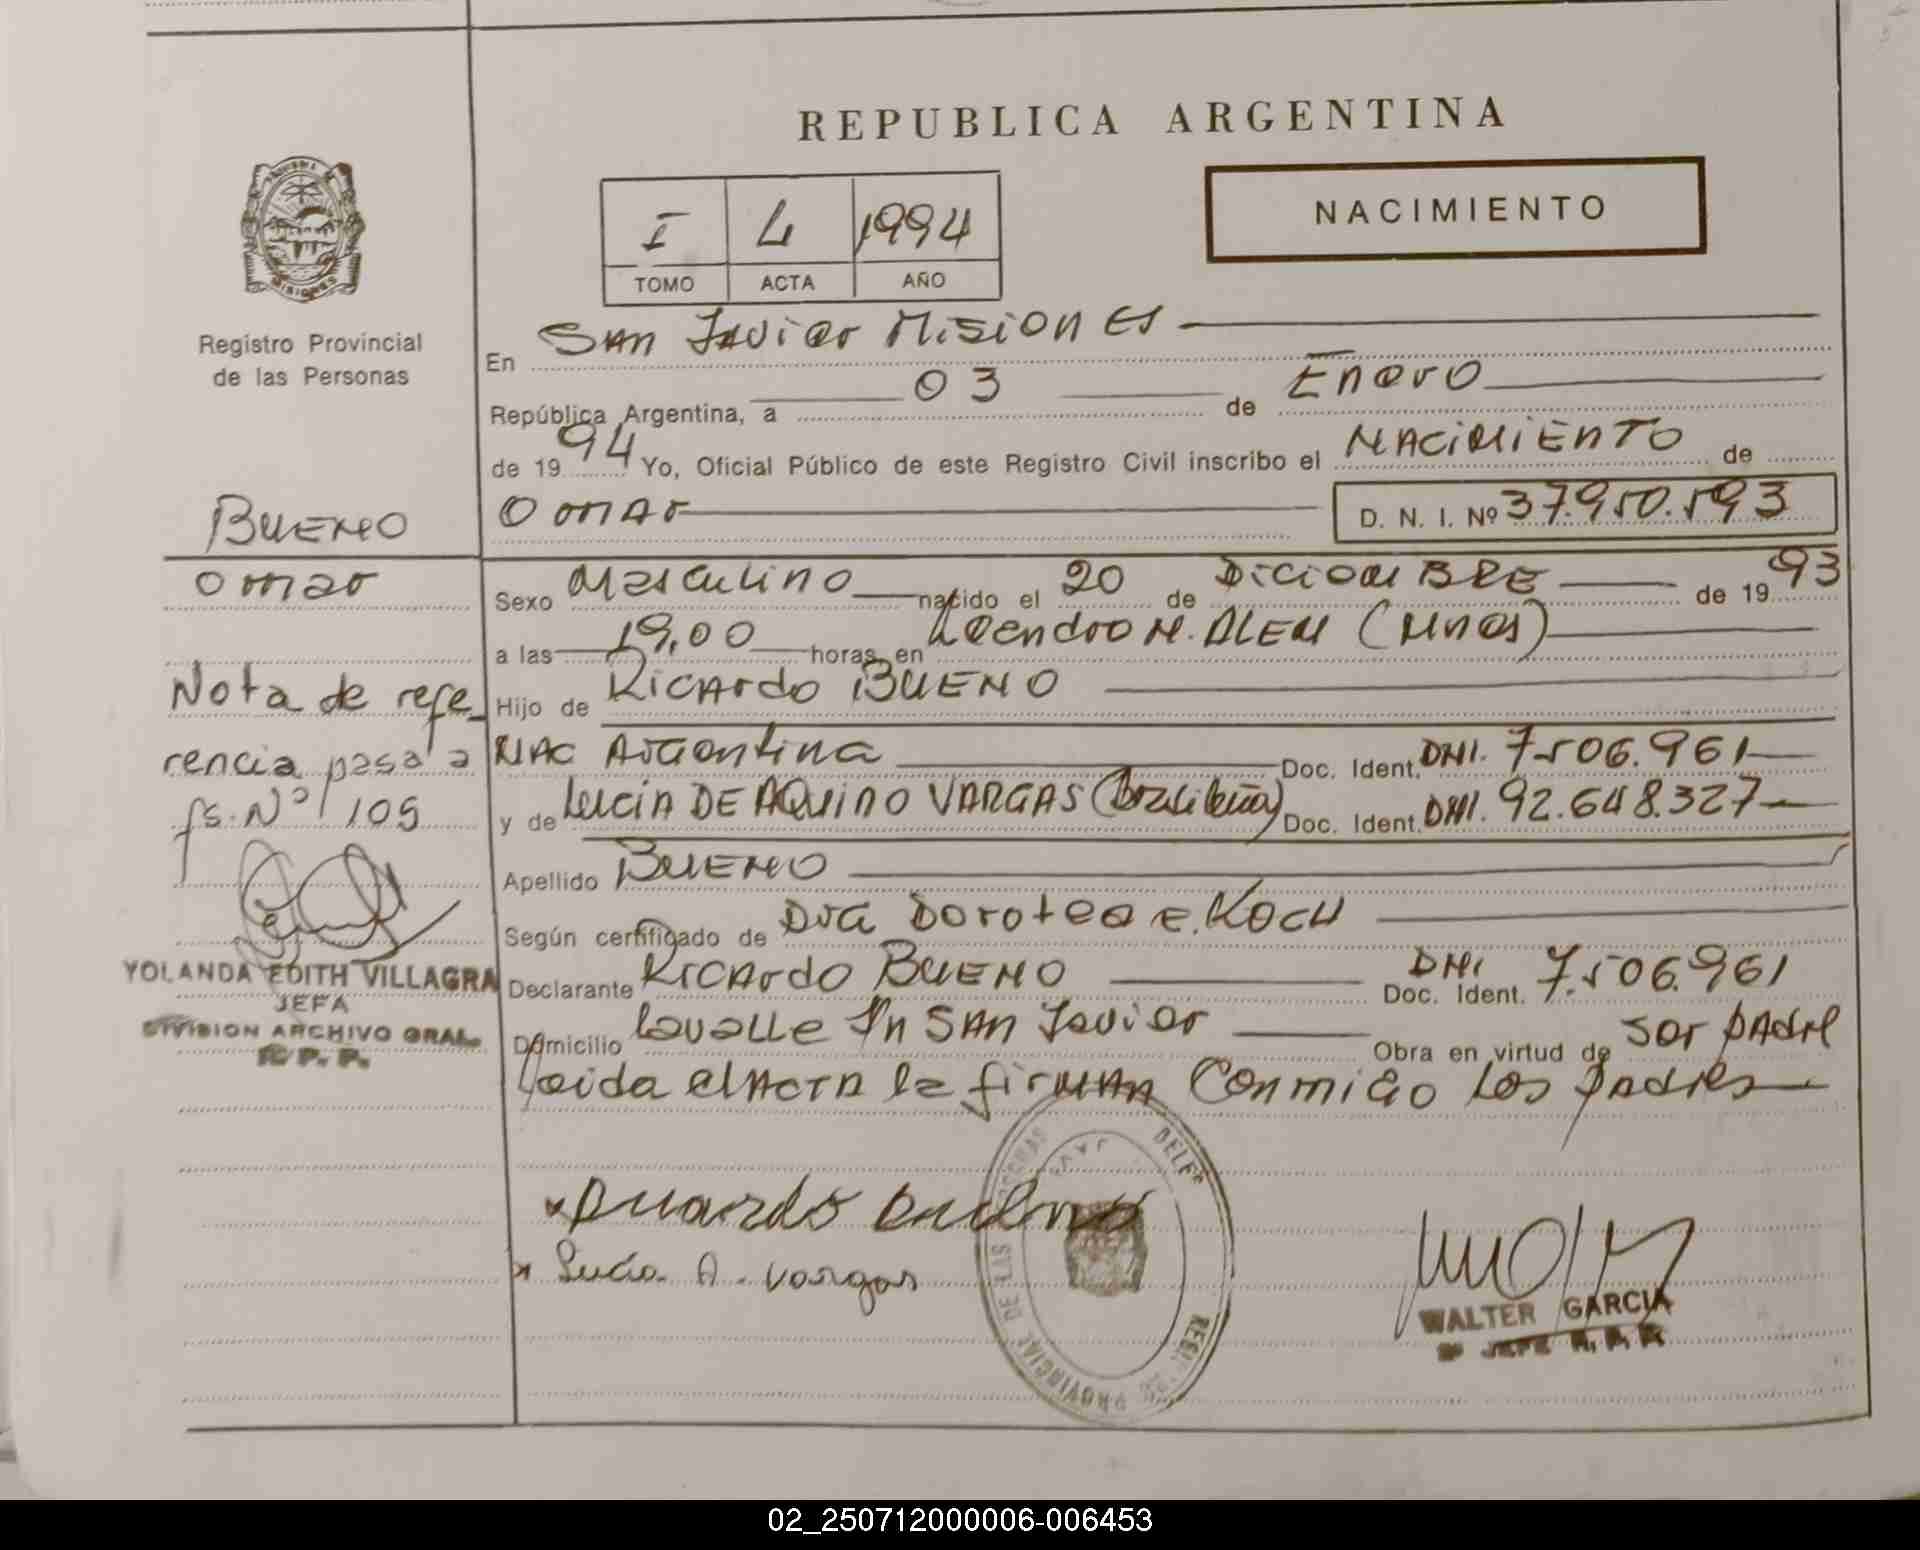 REPUBLICA ARGENTINA
NACIMIENTO
I 4 1994
TOMO ACTA AÑO
MISIONES
Registro Provincial
de las Personas
En San Javier Misiones
República Argentina, a 03 de Enero
de 1994 Yo, Oficial Público de este Registro Civil inscribo el NACIMIENTO de
Omar D. N. I. Nº 37.950.593
BUENO
Omar
Sexo Masculino nacido el 20 de DICIEMBRE de 1993
a las 19,00 horas en Leandro N. ALEM (Mnes)
Hijo de Ricardo BUENO
NAC Argentina Doc. Ident. DNI. 7.506.961
y de Lucia DE AQUINO VARGAS (Brasileña) Doc. Ident. DNI. 92.648.327
Apellido BUENO
Según certificado de Dra Dorotea E. Koch
Declarante Ricardo BUENO Doc. Ident. DNI 7.506.961
Domicilio Lavalle Sn SAN Javier Obra en virtud de ser padre
Leida el ACTA la firman Conmigo Los padres
Nota de refe_
rencia pasa a
fs. Nº 105
YOLANDA EDITH VILLAGRA
JEFA
DIVISION ARCHIVO GRAL.
R. P. P.
Lucia A. Vargas
PROVINCIAL DE LAS
WALTER GARCIA
JEFE R. P. P.
02_250712000006-006453